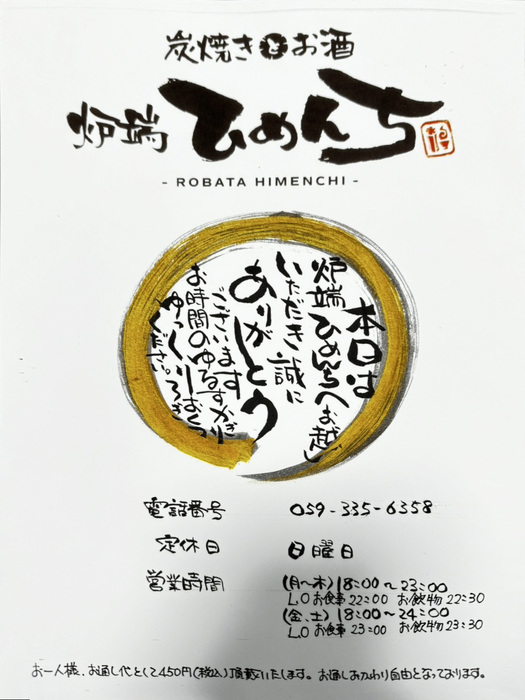 炭焼きとお酒
炉端 ひめんち
- ROBATA HIMENCHI -
本日は
炉端ひめんちへお越し
いただき誠に
ありがとう
ございます
お時間のゆるすかぎり
ゆっくりおくつろぎ
ください。
電話番号 059-335-6358
定休日 日曜日
営業時間 (月〜木)18:00〜23:00
L.Oお食事22:00 お飲物22:30
(金、土)18:00〜24:00
L.Oお食事23:00 お飲物23:30
お一人様、お通し代として450円(税込)頂戴いたします。お通しおかわり自由となっております。